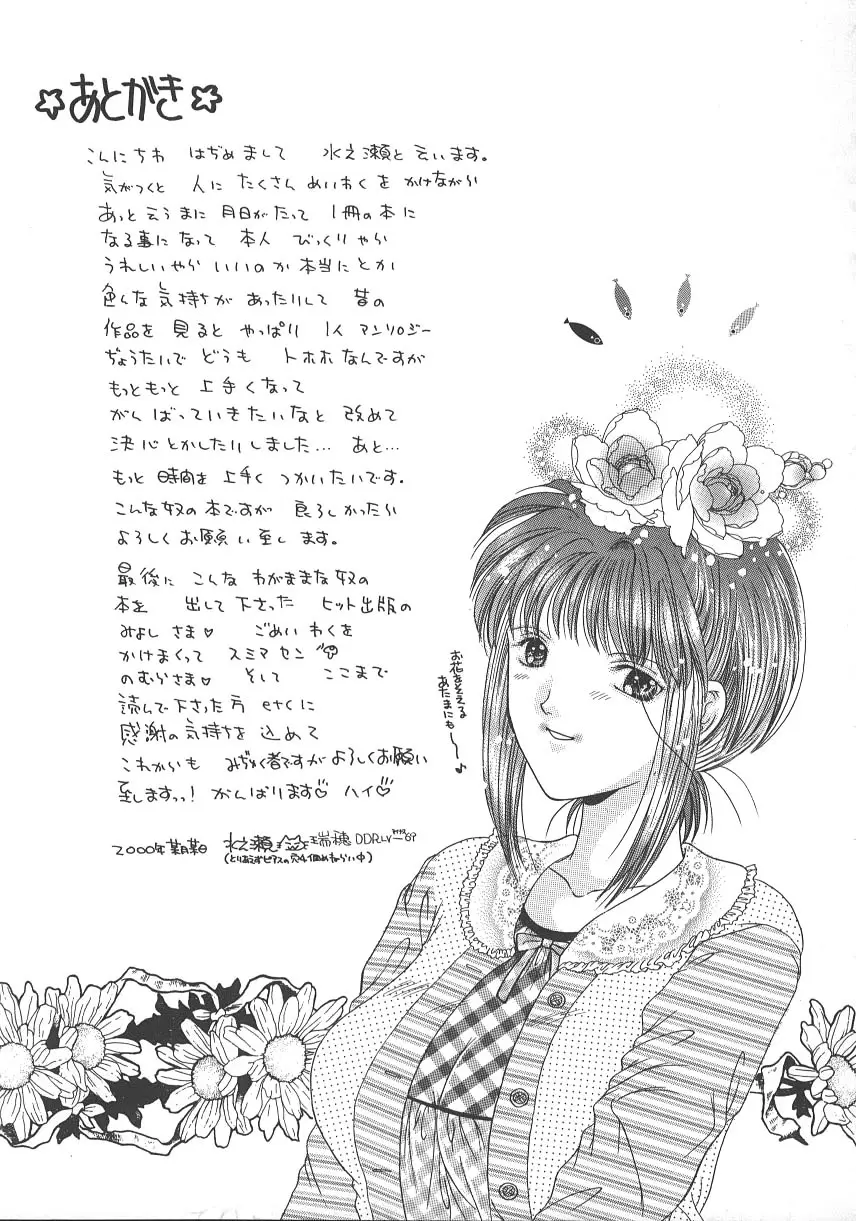 ☆あとがき☆
こんにちわ はぢめまして 水之瀬と云います。
気がつくと 人に たくさん めいわくを かけながら
あっと云うまに 月日がたって 1冊の本に
なる事になって 本人 びっくりやら
うれしいやら いいのか本当にとか
色んな気持ちが あったりして 昔の
作品を 見ると やっぱり 1人 アンソロジー
ぢょうたいで どうも トホホなんですが
もっともっと 上手くなって
がんばっていきたいなと 改めて
決心とかしたりしました… あと…
もっと 時間を 上手く つかいたいです。
こんな奴の本ですが 良ろしかったら
よろしくお願い致し ます。
最後に こんな わがままな奴の
本を 出して下さった ヒット出版の
みよし さま♡ ごめいわくを
かけまくって スミマセン
のむらさま♡ そして ここまで
読んで下さった方 etcに
感謝の気持ちを 込めて
これからも みぢゅく者ですがよろしくお願い
至しますっ! がんばります♡ ハイ♡
2000年 水之瀬 瑞穂 DDR LV
(とりあえずピアスの穴4個めねらい中)
お花をそえる
あたまにも〜〜♪